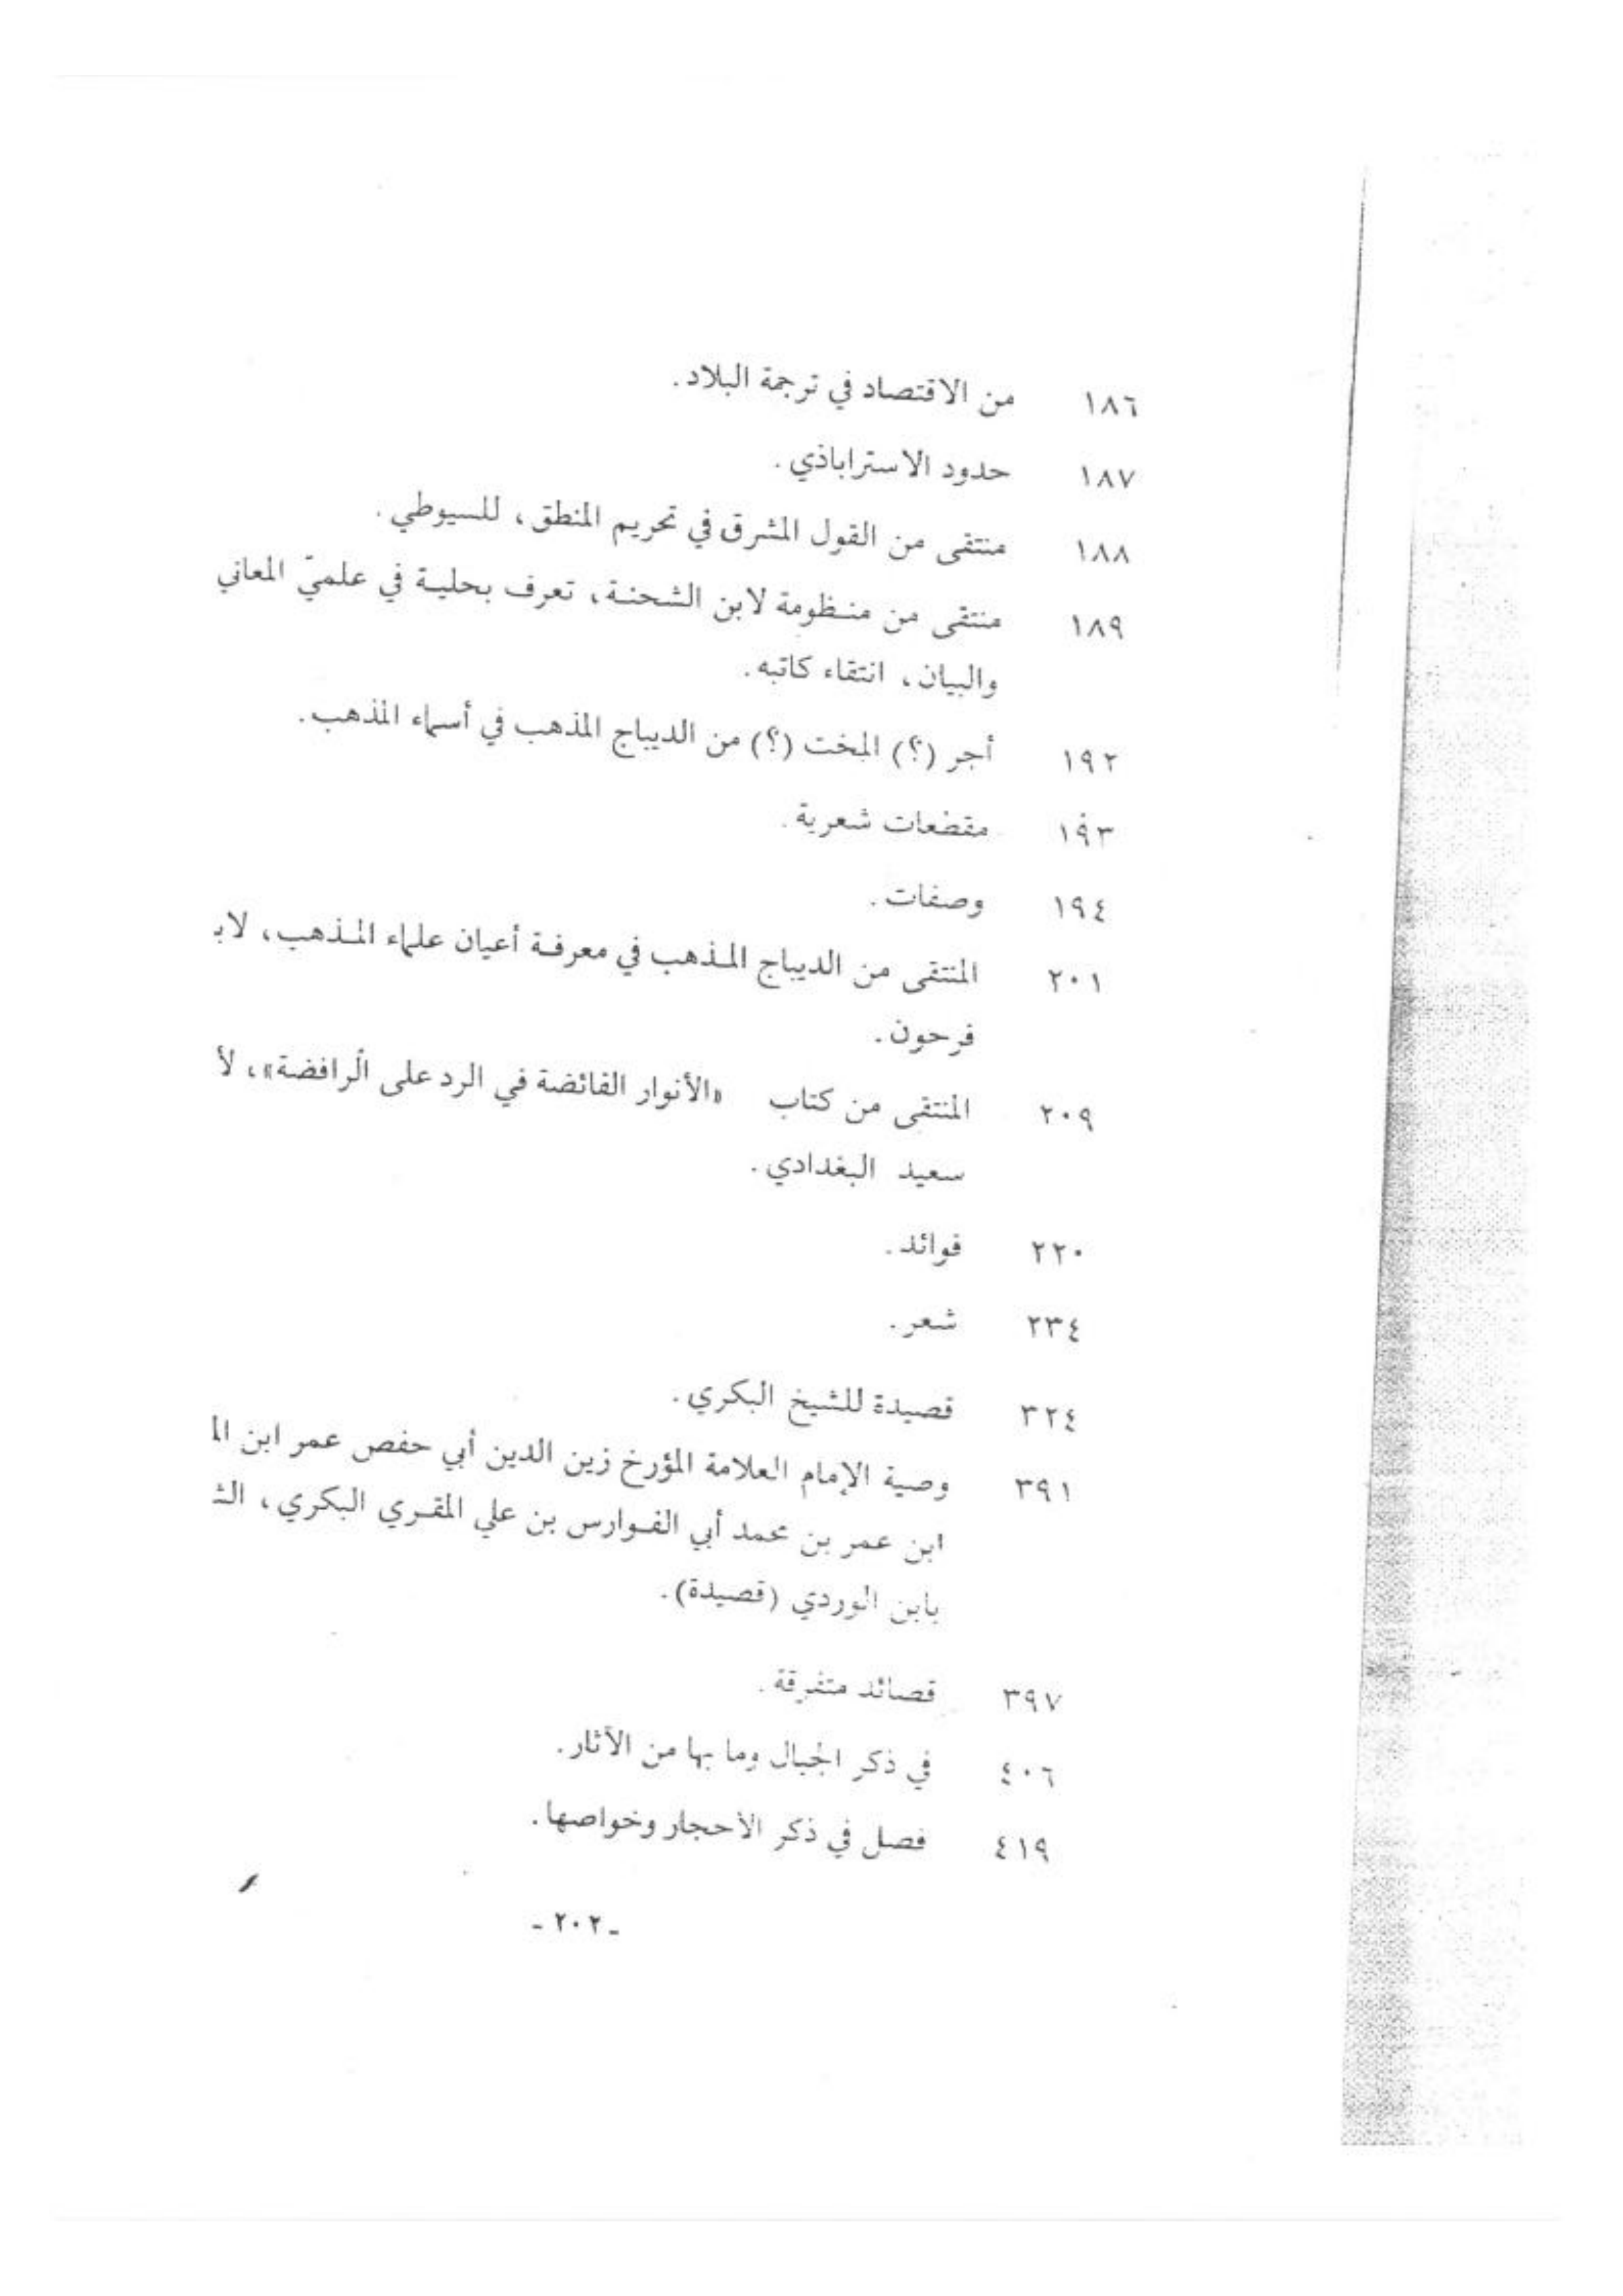 ١٨٦ من الاقتصاد في ترجمة البلاد.
١٨٧ حدود الاستراباذي.
١٨٨ منتقى من القول المشرق في تحريم المنطق، للسيوطي.
١٨٩ منتقى من منظومة لابن الشحنة، تعرف بحلية في علميّ المعاني
والبيان، انتقاء كاتبه.
١٩٢ أجر (؟) المخت (؟) من الديباج المذهب في أسماء المذهب.
١٩٣ مقطعات شعرية.
١٩٤ وصفات.
٢٠١ المنتقى من الديباج المذهب في معرفة أعيان علماء المذهب، لابـ
فرحون.
٢٠٩ المنتقى من كتاب «الأنوار الفائضة في الرد على الرافضة»، لأ
سعيد البغدادي.
٢٢٠ فوائد.
٢٣٤ شعر.
٣٢٤ قصيدة للشيخ البكري.
٣٩١ وصية الإمام العلامة المؤرخ زين الدين أبي حفص عمر ابن الم
ابن عمر بن محمد أبي الفوارس بن علي المقري البكري، الشـ
بابن الوردي (قصيدة).
٣٩٧ قصائد متفرقة.
٤٠٦ في ذكر الجبال وما بها من الآثار.
٤١٩ فصل في ذكر الأحجار وخواصها.
- ٢٠٢ -